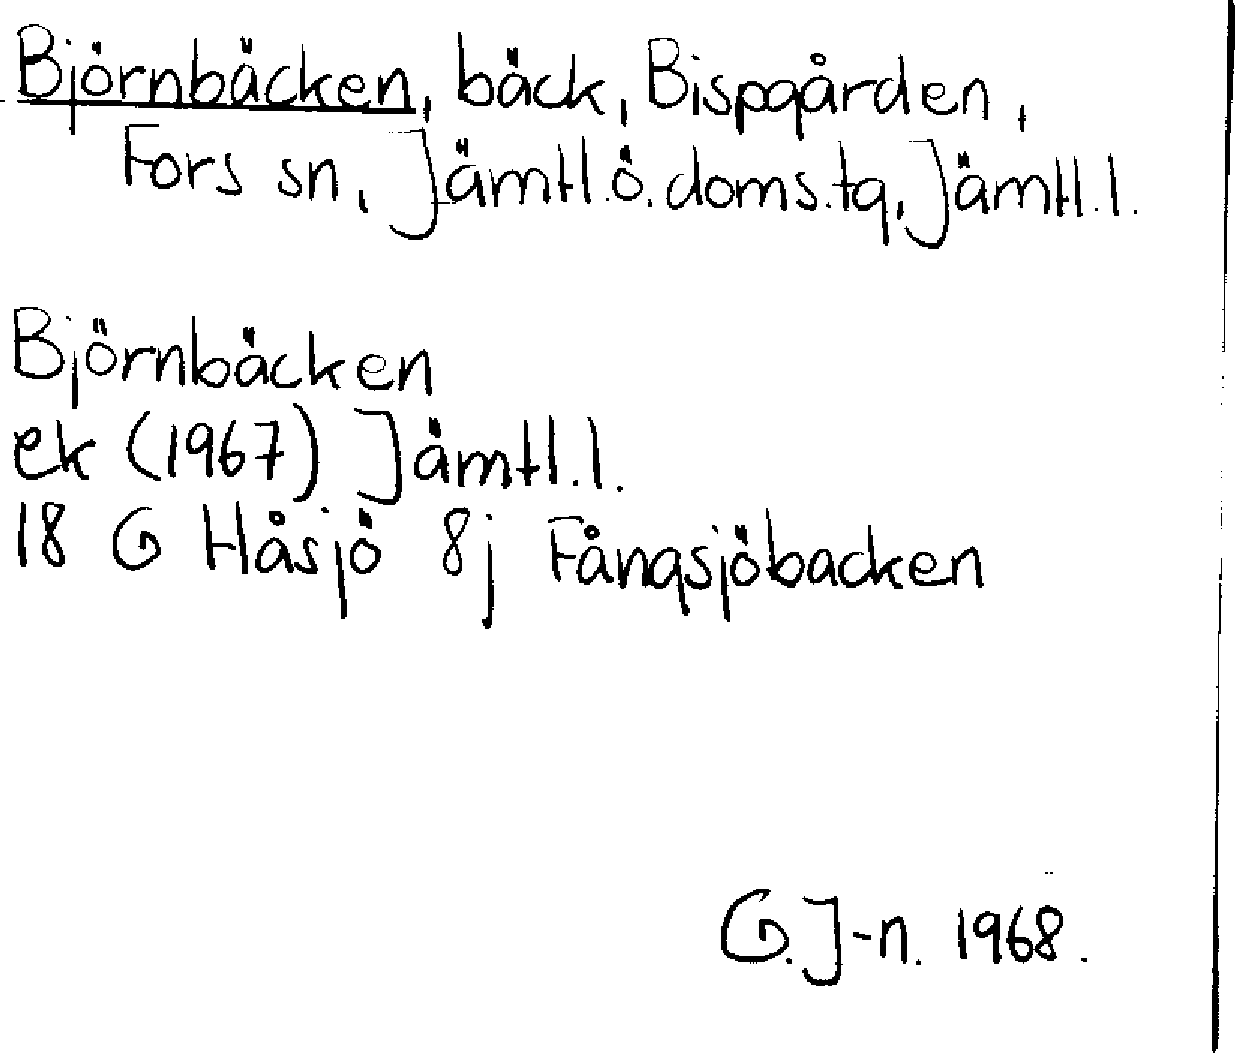 Björnbäcken, bäck, Bispgården,
Fors sn, Jämtl.ö.doms.tg, Jämtl.l.
Björnbäcken
ek (1967) Jämtl.l.
18 G Håsjö 8j Fångsjöbacken
G.J-n. 1968.